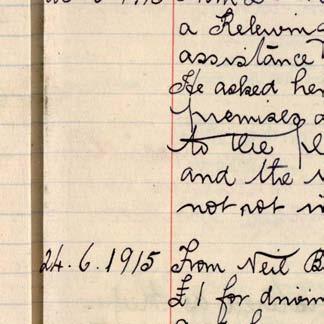 a Relewin
assistance
He asked her
premises
to the
and the
not not
24.6.1915 From Neil B
£1 for drivin